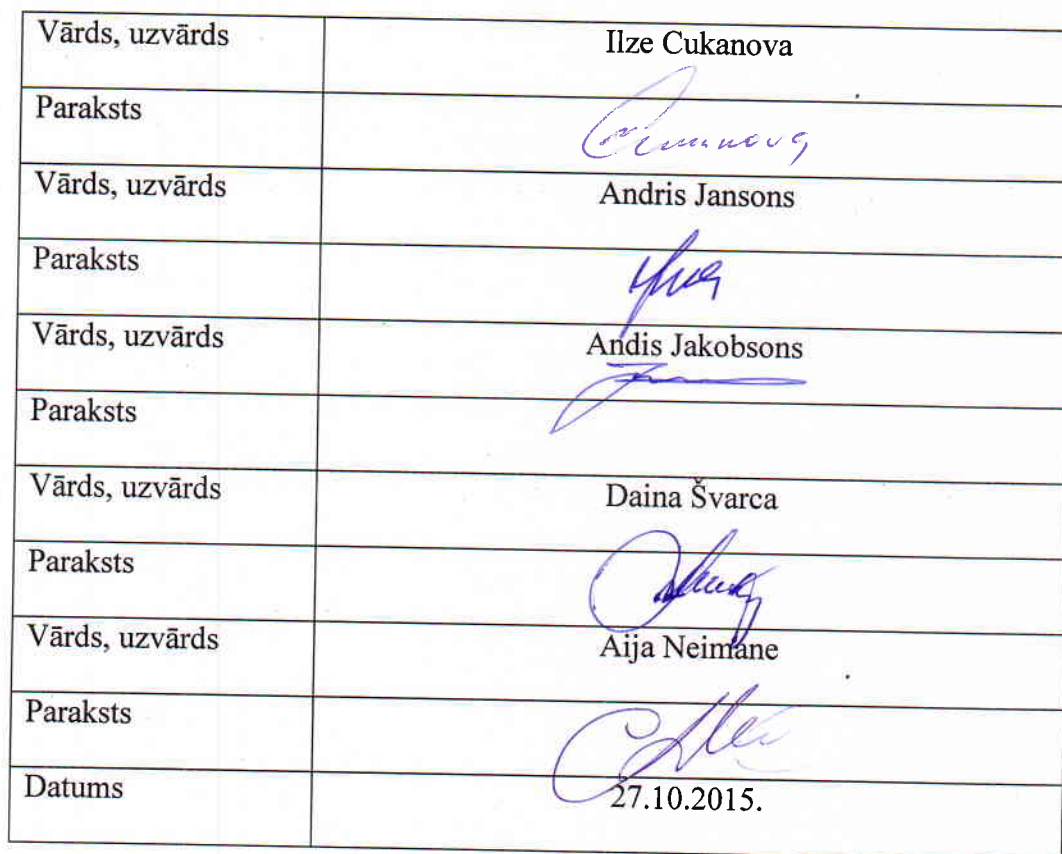 Vārds, uzvārds Ilze Cukanova
Paraksts
Vārds, uzvārds Andris Jansons
Paraksts
Vārds, uzvārds Andis Jakobsons
Paraksts
Vārds, uzvārds Daina Švarca
Paraksts
Vārds, uzvārds Aija Neimane
Paraksts
Datums 27.10.2015.